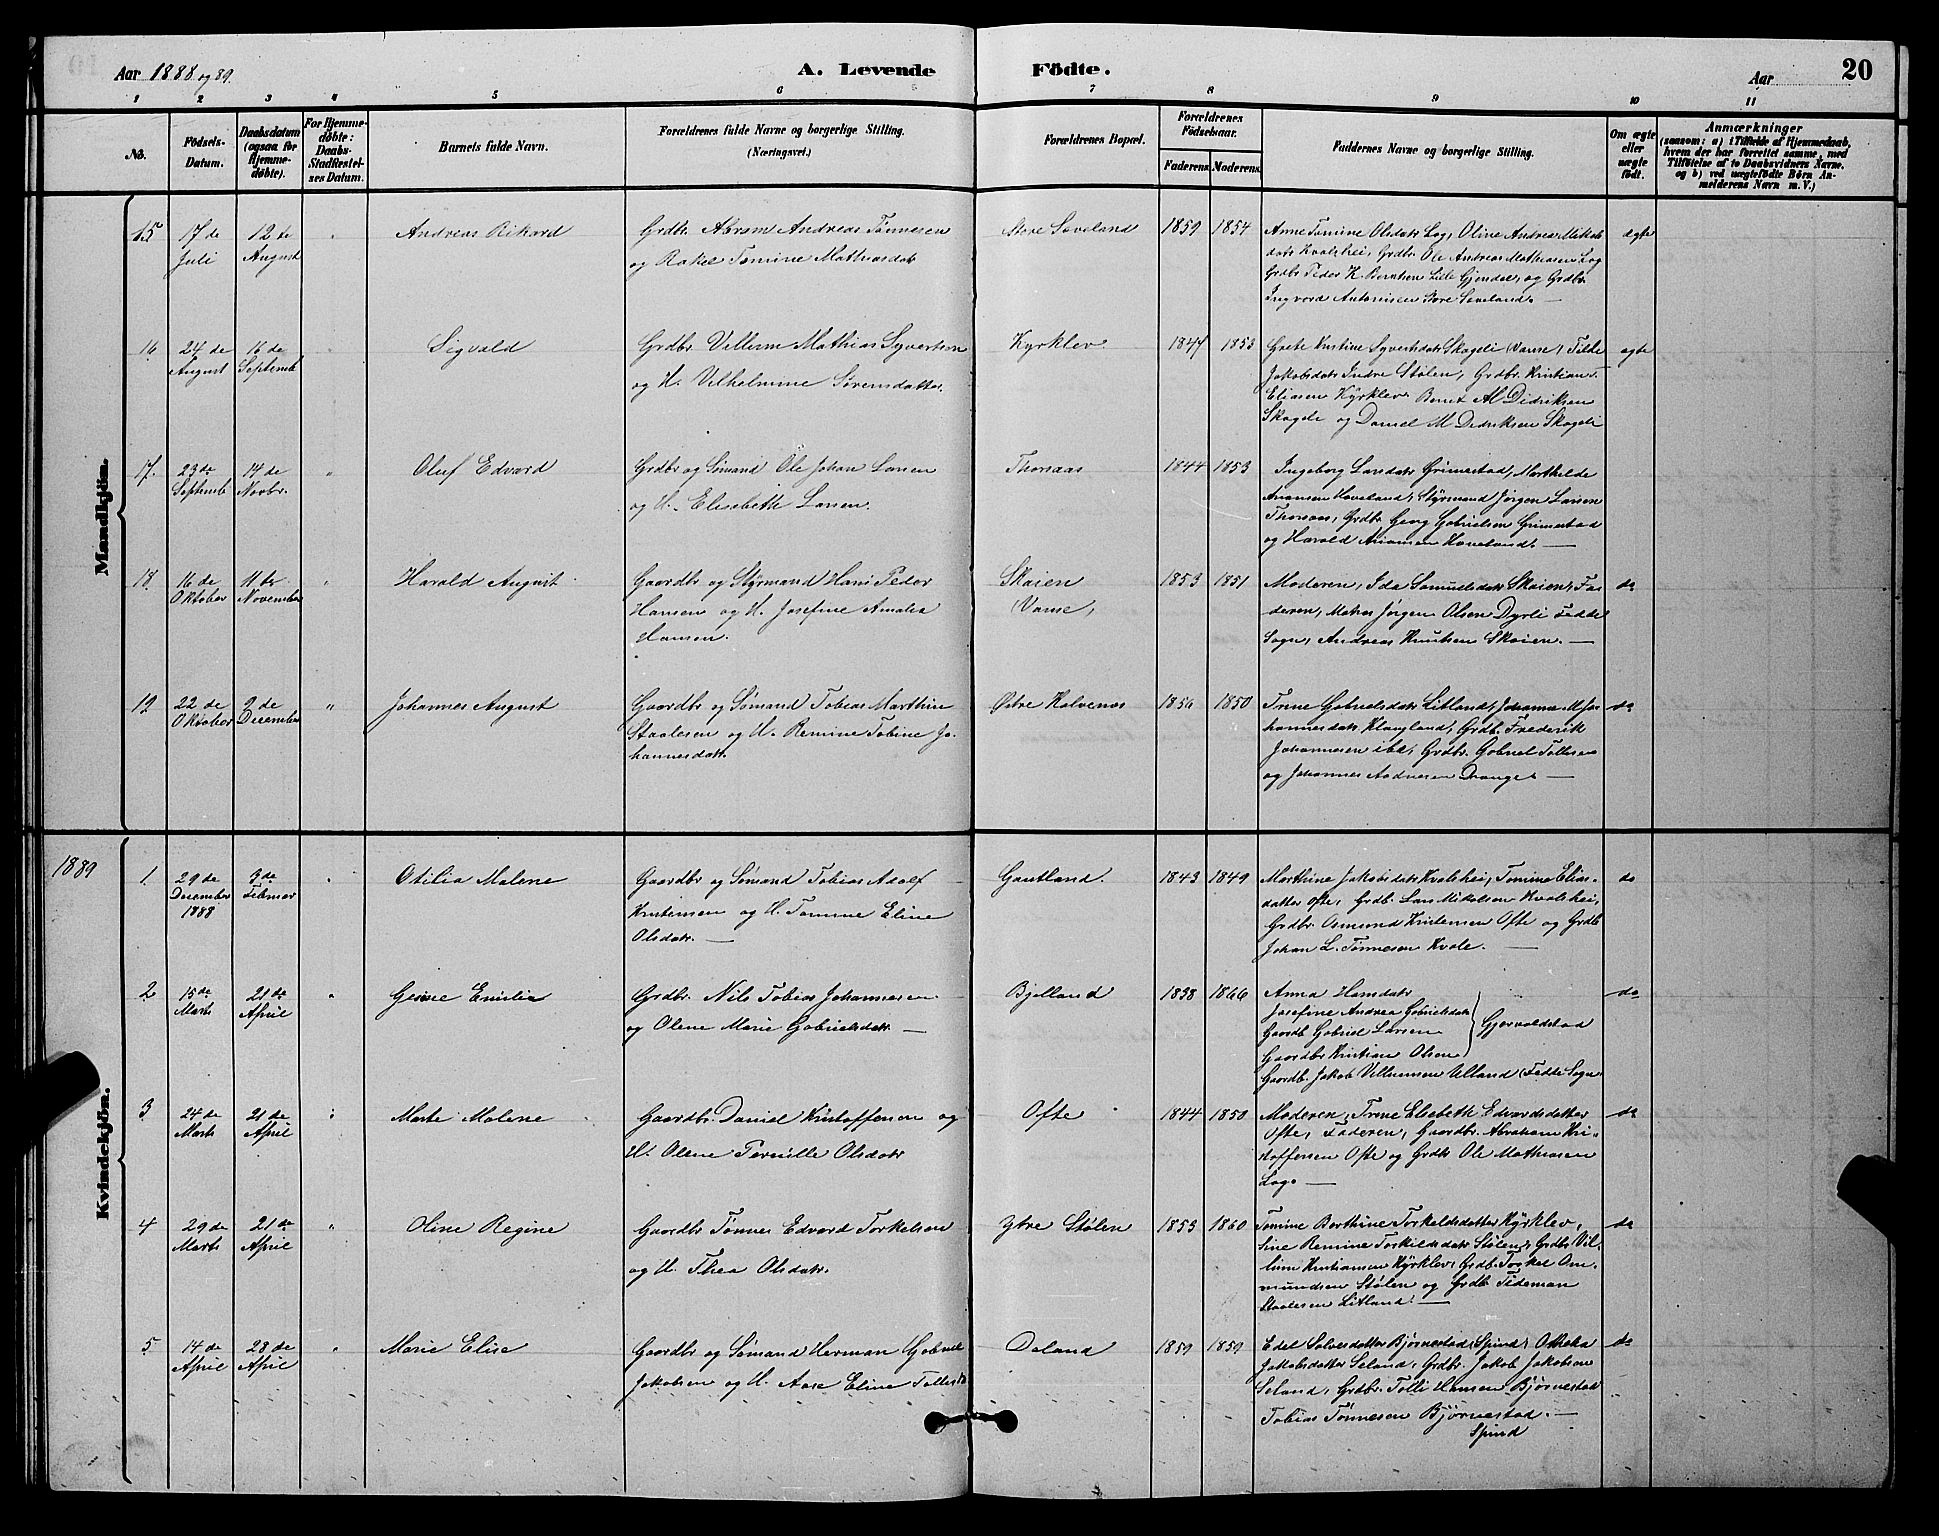 Aar 1888 og 89.
A. Levende Födte.
Aar
20
1 2 3 4 5 6 7 8 9 10 11
No.
Födsels-Datum.
Daabsdatum (ogsaa for Hjemme-døbte).
For Hjemme-døbte: Daabs-Stadfæstel-ses Datum.
Barnets fulde Navn.
Forældrenes fulde Navne og borgerlige Stilling.
(Næringsvei.)
Forældrenes Bopæl.
Forældrenes Födselsaar.
Faderens. Moderens.
Faddernes Navne og borgerlige Stilling.
Om ægte eller uægte født.
Anmærkninger
(saasom: a) i Tilfælde af Hjemmedaab, hvem der har forrettet samme, med Tilföielse af to Daabsvidners Navne. og b) ved uægtefödte Börn An-melderens Navn m. V.)
Mandkjön.
15 17 de Juli 12 te August " Andreas Rikard
Grdbr. Abram Andreas Tønnesen
og Rakel Tomine Mathiasdatr
Store Soveland 1859 1854
Anne Tomine Olsdatr Log, Oline Andrea
datr Kvalshei, Grdbr. Ole Andreas Mathiasen Log
Grdbr Peder K. Berntsen Lille Gjendal, og Grdbr.
Ingvard Antonisen Store Soveland. —
ægte
16 24 de August 16 de Septemb " Sigvald
Grdbr Vellum Mathias Syvertsen
og H. Vilhelmine Sørensdatter
Kyrklev 1847 1853
Grete Kristine Syvertsdatr Skogeli (Vanse), Tilde
Jakobsdatr Indre Stølen, Grdbr. Kristian T.
Eliasen Kyrklev Bernt Al Didriksen
Skogeli og Daniel M Didriksen Skogeli
ægte
17. 23 de Septemb 14 de Novbr. " Oluf Edvard
Grdbr og Sømand Ole Johan Larsen
og H. Elisebeth Larsen.
Thorsaas 1844 1853
Ingeborg Larsdatr Grimestad, Marthilde
Aanensen Haveland, Styrmand Jørgen Larsen
Thorsaas, Grdbr Georg Gabrielsen Grimestad
og Harald Aanensen Haveland. —
18 16 de Oktober 11 te November " Harald August
Gaardbr og Styrmand Hans Peder
Hansen og H. Josefine Amalia
Hansen.
Skaien
(Vanse)
1853 1851
Moderen, Ida Samuelsdatr Skaien, Fa-
deren, Matros Jørgen Olsen Dyrli Fedde
Sogn, Andreas Knutsen Skaien. —
do
19 22 de Oktober 9 de December " Johannes August
Gaardbr og Sømand Tobias Marthin
Staalesen og H. Remine Tobine Jo-
hannesdatr.
Østre Kalvenes 1856 1850
Trine Gabrielsdatr Litland, Johanna M. Jo-
hannesdatr Klungland, Grdbr. Frederik
Johannesen ibd, Grdbr. Gabriel Tollisen
og Johannes Aadnesen Drange. —
do
1889
Kvindekjön.
1. 29 de December 1888 3 de Februar " Otilia Malene
Gaardbr og Sømand Tobias Adolf
Kristensen og H. Tomine Eline
Olsdatr. —
Gautland. 1843 1849
Marthine Jakobsdatr Kvalshei, Tomine Elias-
datter Ofte, Grdb. Lars Mikalsen Kvalshei,
Grdbr. Osmund Kristensen Ofte og Grdb
Johan L. Tønnesen Kvale. —
do
2 15 de Marts 21 de April " Gesine Emilia
Grdbr. Nils Tobias Johannesen
og Olene Marie Gabrielsdatr. —
Bjelland 1838 1866
Anna Hansdatr
Josefine Andrea Gabrielsdatr
Gaardb Gabriel Larsen
Gaardbr Kristian Olsen
Gjervoldstad
Gaardb. Jakob Villumsen Ulland (Fedde Sogn
do
3 24 de Marts 21 de April " Marte Malene
Gaardbr. Daniel Kristoffersen og
H. Olene Pernille Olsdatr
Ofte 1844 1850
Moderen, Trine Elisebeth Edvardsdatter
Ofte, Faderen, Gaardbr. Abraham Kri-
stoffersen Ofte og Grdb. Ole Mathiasen
Log. —
do
4 29 de Marts 21 de April " Oline Regine
Gaardbr Tønnes Edvard Torkelsen
og H. Thea Olsdatr.
Ytre Stølen 1855 1860
Tomine Borthine Torkeldsdatter Kyrklev,
Sine Remine Torkildsdatr Stølen, Grdbr Vil-
lum Kristiansen Kyrklev, Grdb. Torkel Om-
mundsen Stølen og Grdb. Tideman
Staalesen Litland. —
do
5 14 de April 28 de April " Marie Elise
Gaardbr og Sømand Herman Gabriel
Jakobsen og H. Aase Eline Tollisd
Døland 1859 1859
Edel Salvesdatter Bjørnestad, Spind, Otthelia
Jakobsdatter Seland, Grdbr. Jakob Jakobsen
Seland, Grdbr. Tolli Hansen Bjørnestad
Tobias Tønnesen Bjørnestad. —
Spind
do